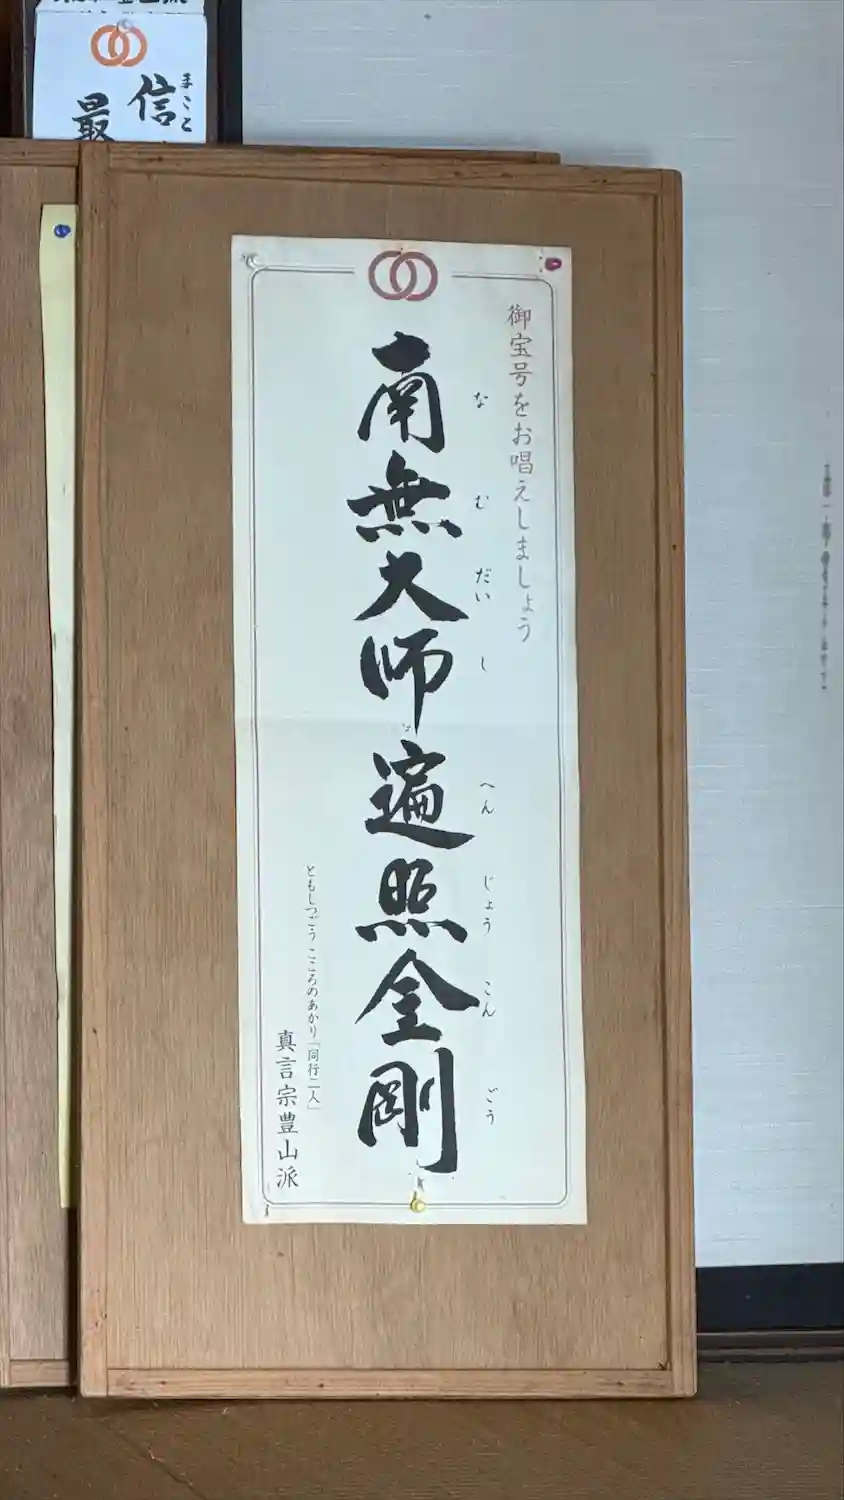 信
まこと
最
御宝号をお唱えしましょう
南無大師遍照金剛
なむだいしへんじょうこんごう
ともしつごう こころのあかり「同行二人」
真言宗豊山派